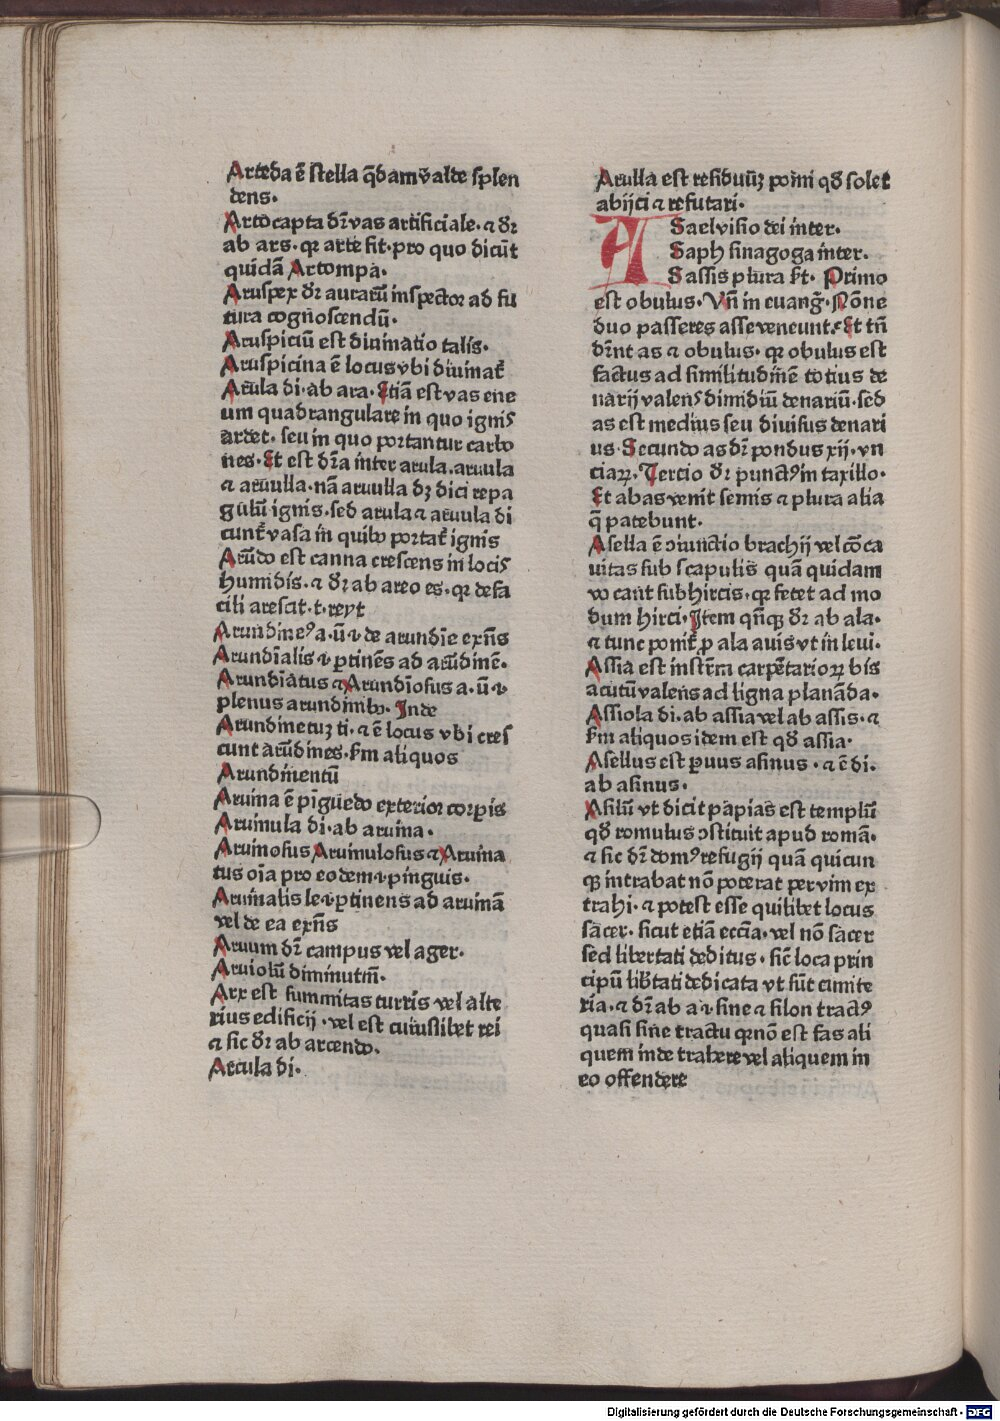 Arteda ē stella q̄dam valde splen
dens.
Artocapta dr̄ vas artificiale. ⁊ dr̄
ab ars. qꝛ arte fit. pro quo dicūt
quidā Artompa.
Aruspex dr̄ auratū inspector ad fu
tura cognoscendū.
Aruspiciū est diuinatio talis.
Aruspicina ē locus vbi diuinat᷑
Arula di. ab ara. Etiā est vas ene
um quadrangulare in quo ignis
ardet. seu in quo portantur carbo
nes. Et est dr̄a inter arula. aruula
⁊ aruulla. nā aruulla dꝫ dici repa
gulū ignis. sed arula ⁊ aruula di
cunt᷑ vasa in quibꝰ portat᷑ ignis
Arūdo est canna crescens in locis
humidis. ⁊ dr̄ ab areo es. qꝛ defa
cili arescit. t. reyt
Arundineꝰ a. ū. i. de arundīe exn̄s
Arundīalis .i. ꝑtinēs ad arūdinē.
Arundīatus ⁊ Arundīosus a. ū. i.
plenus arundinibꝰ. Inde
Arundinetuꝫ ti. ⁊ ē locus vbi cres
cunt arūdines. ẜm aliquos
Arundinentū
Aruina ē pīguedo exterior corpis
Aruinula di. ab aruina.
Aruinosus Aruinulosus ⁊ Aruina
tus oīa pro eodem .i. pinguis.
Aruinalis le .i. ꝑtinens ad aruinā
vel de ea exn̄s
Aruum dr̄ campus vel ager.
Aruiolū diminutm̄.
Arx est summitas turris vel alte
rius edificij. vel est cuiuslibet rei
⁊ sic dr̄ ab arcendo.
Arcula di.
Arulla est residuūꝫ pomi qd̄ solet
abijci ⁊ refutari.
ASael visio dei inter.
Saph sinagoga inter.
Sassis plura ẜt. Primo
est obulus. Vn̄ in euang̃. Nōne
duo passeres asse veneunt. Et tn̄
dr̄nt as ⁊ obulus. qꝛ obulus est
factus ad similitudinē totius de
narij valens dimidiū denariū. sed
as est medius seu diuisus denari
us. Secundo as dr̄ pondus xij. vn
ciaꝝ. Tercio dr̄ punctꝰ in taxillo.
Et ab as venit semis ⁊ plura alia
q̄ patebunt.
Asella ē ꝯiunctio brachij vel cōca
uitas sub scapulis quā quidam
vocant subhircis. qꝛ fetet ad mo
dum hirci. Item qn̄qꝫ dr̄ ab ala.
⁊ tunc ponit᷑ ꝓ ala auis vt in leui.
Assia est instm̄ carpētarioꝝ bis
acutū valens ad ligna planāda.
Assiola di. ab assia vel ab assis. ⁊
ẜm aliquos idem est qd̄ assia.
Asellus est ꝑuus asinus. ⁊ ē di.
ab asinus.
Asilū vt dicit papias est templū
qd̄ romulus ꝯstituit apud romā.
⁊ sic dr̄ domꝰ refugij quā quicun
qꝫ intrabat nō poterat per vim ex
trahi. ⁊ potest esse quilibet locus
sacer. sicut etiā eccīa. vel nō sacer
sed libertati deditus. sic̄ loca prin
cipū lib̄tati dedicata vt sūt cimite
ria. ⁊ dr̄ ab a .i. sine ⁊ silon tractꝰ
quasi sine tractu qꝛ nō est fas ali
quem inde trahere vel aliquem in
eo offendere
Digitalisierung gefördert durch die Deutsche Forschungsgemeinschaft - DFG